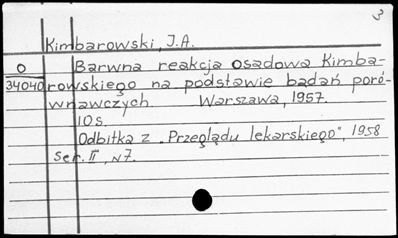 3
Kimbarowski, J.A.
O
34040
Barwna reakcja osadowa Kimba-
rowskiego na podstawie badań poró-
wnawczych Warszawa, 1957.
10 s.
Odbitka z „Przeglądu lekarskiego", 1958
Ser. II, N 7.